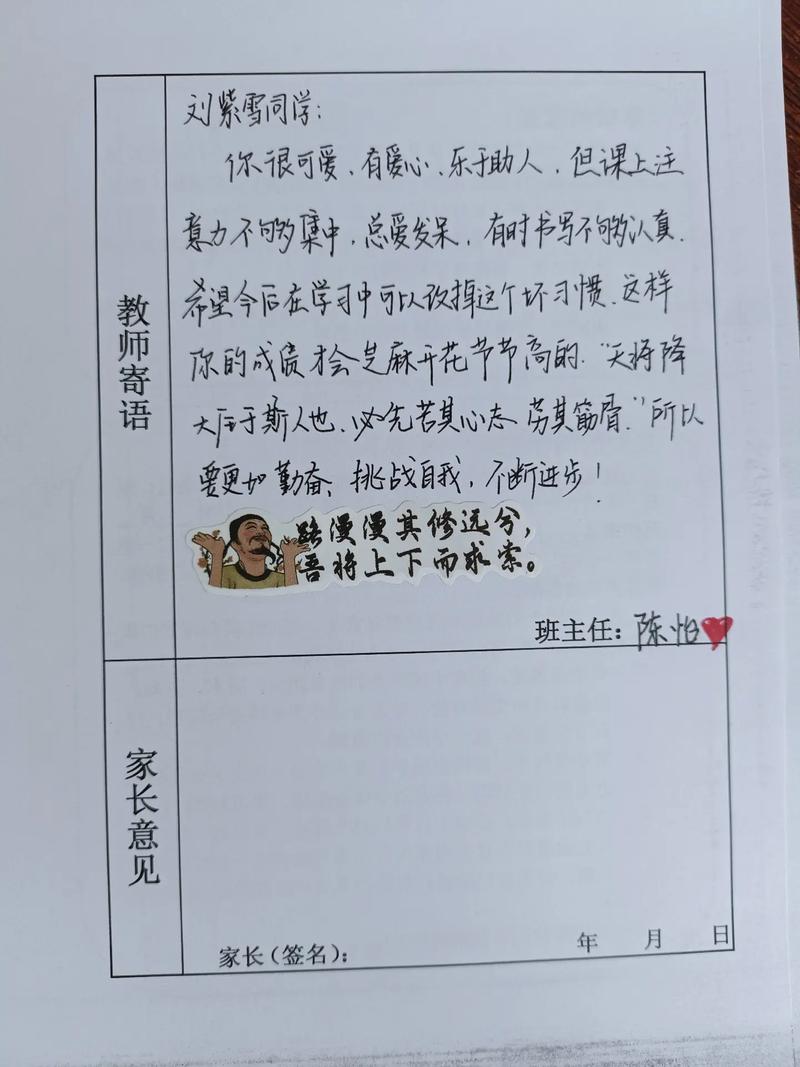 教师寄语
刘紫雪同学：
你很可爱、有爱心、乐于助人，但课上注
意力不够集中，总爱发呆，有时书写不够认真.
希望今后在学习中可以改掉这个坏习惯.这样
你的成绩才会芝麻开花节节高的.“天将降
大任于斯人也、必先苦其心态 劳其筋骨.”所以
要更加勤奋、挑战自我，不断进步！
路漫漫其修远兮，
吾将上下而求索。
班主任：陈怡
家长意见
家长（签名）：
年 月 日